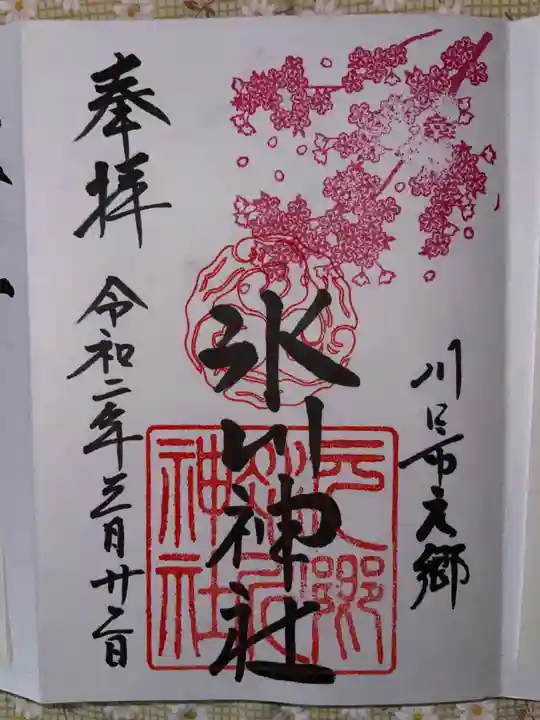 川口市元郷
氷川神社
元郷
氷川
神社
奉拝
令和二年三月廿二日